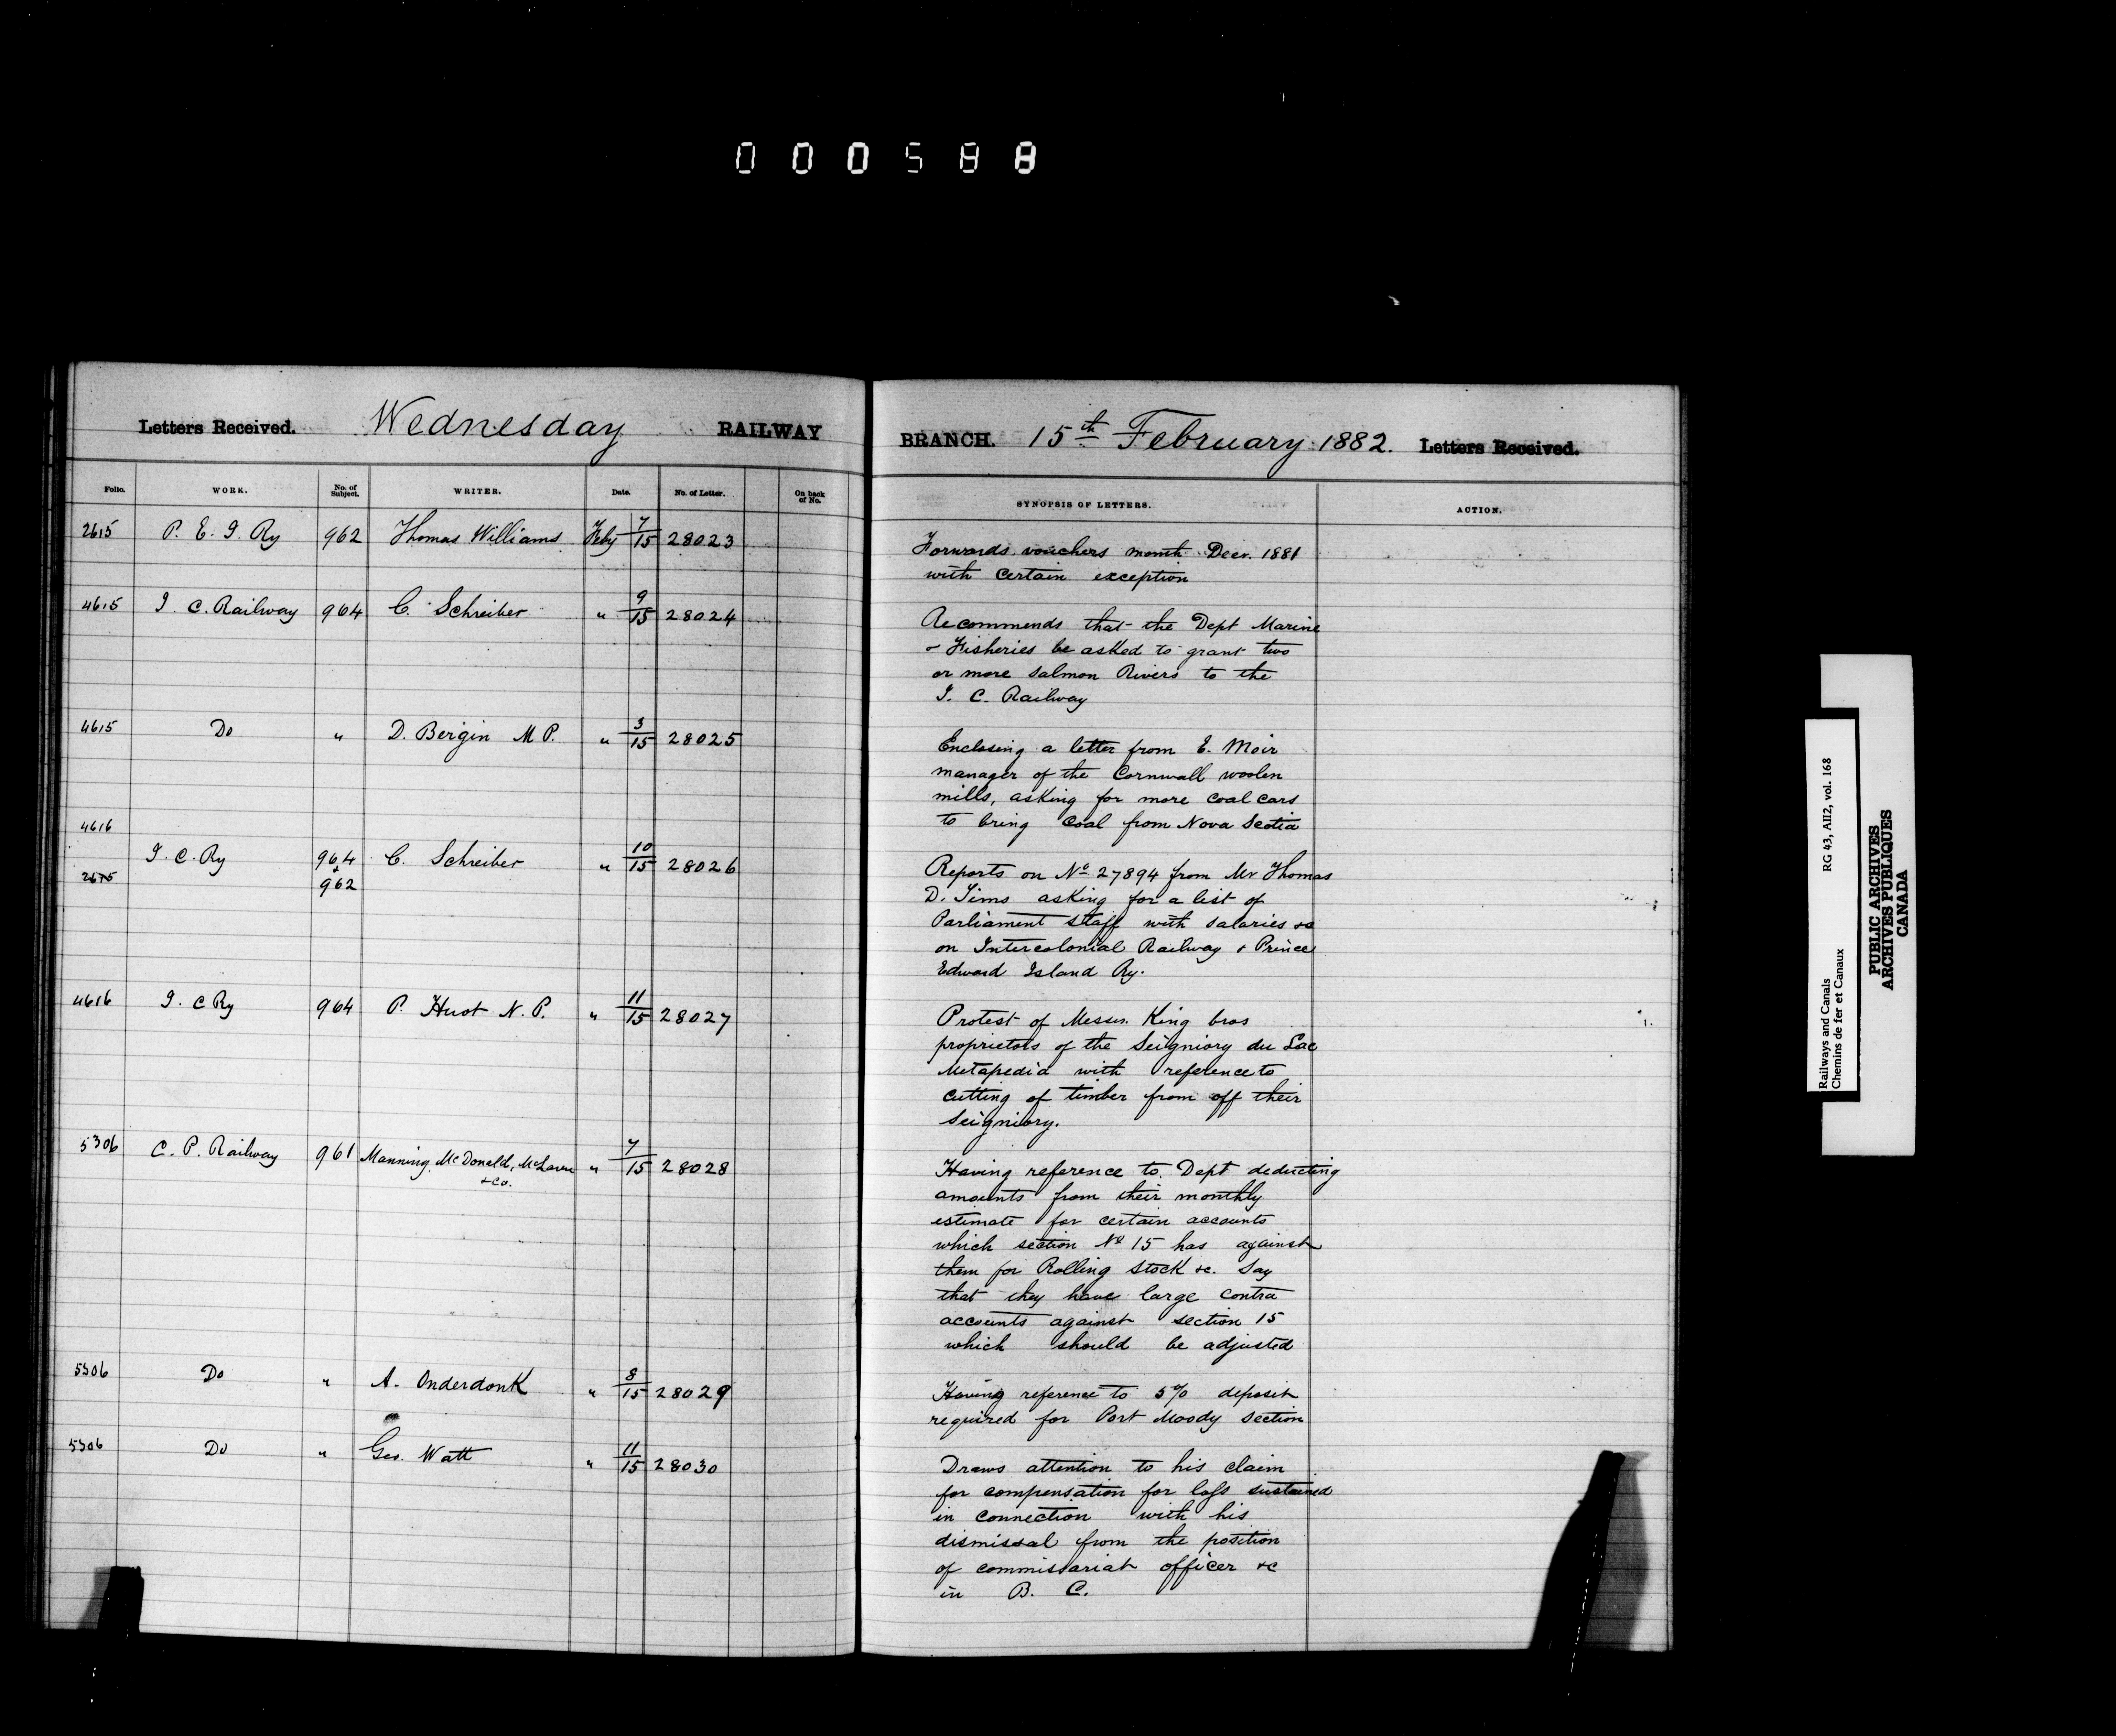 000588
Letters Received. Wednesday RAILWAY
BRANCH. 15th February 1882. Letters Received.
Folio. WORK. No. of Subject. WRITER. Date. No. of Letter. On back of No.
SYNOPSIS OF LETTERS. ACTION.
2615 P. E. I. Ry 962 Thomas Williams Feby 7/15 28023
Forwards vouchers month Decr. 1881
with certain exception
4615 I. C. Railway 964 C. Schreiber " 9/15 28024
Recommends that the Dept Marine
& Fisheries be asked to grant two
or more Salmon Rivers to the
I. C. Railway
4615 Do " D. Bergin M P. " 3/15 28025
Enclosing a letter from E. Moir
manager of the Cornwall woolen
mills, asking for more coal cars
to bring Coal from Nova Scotia
4616
I. C. Ry 964 C. Schreiber " 10/15 28026
2615 & 962
Reports on No 27894 from Mr Thomas
D. Tims asking for a list of
Parliament Staff with Salaries &c
on Intercolonial Railway & Prince
Edward Island Ry.
4616 I. C Ry 964 P. Huot N. P. " 11/15 28027
Protest of Messrs. King bros
proprietors of the Seigniory du Lac
Metapedia with reference to
cutting of timber from off their
Seigniory.
5306 C. P. Railway 961 Manning, McDonald, McLaren " 7/15 28028
& Co.
Having reference to Dept deducting
amounts from their monthly
estimate for certain accounts
which section No 15 has against
them for Rolling Stock &c. Say
that they have large contra
accounts against section 15
which should be adjusted
5306 Do " A. Onderdonk " 8/15 28029
Having reference to 5% deposit
required for Port Moody Section
5306 Do " Geo. Watt " 11/15 28030
Draws attention to his claim
for compensation for loss sustained
in connection with his
dismissal from the position
of commissariat officer &c
in B. C.
Railways and Canals RG 43, AII2, vol. 168
Chemins de fer et Canaux
PUBLIC ARCHIVES
ARCHIVES PUBLIQUES
CANADA